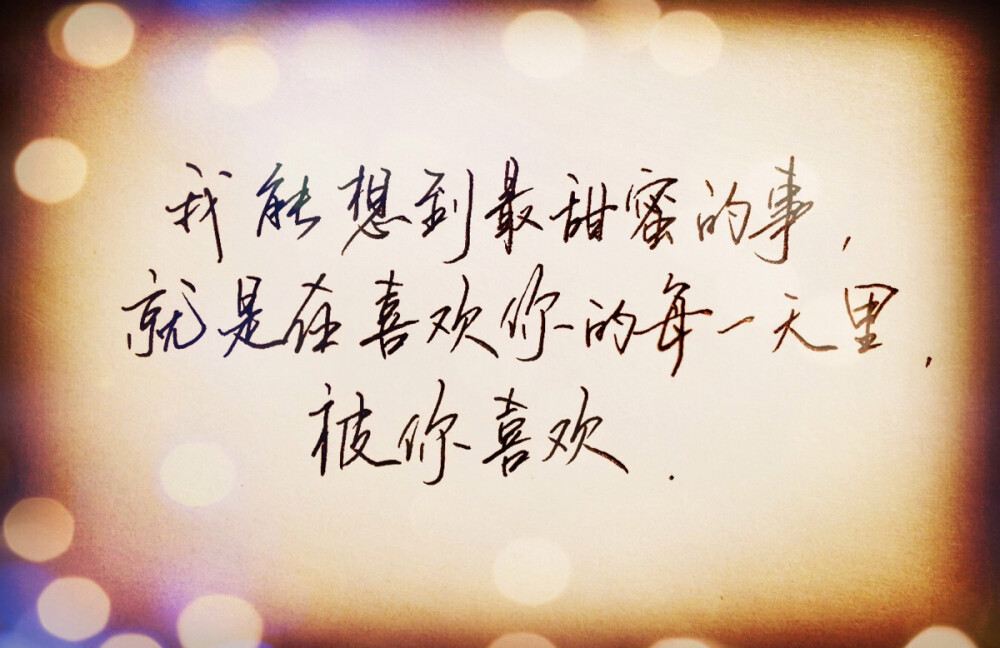 我能想到最甜蜜的事,
就是在喜欢你的每一天里,
被你喜欢.